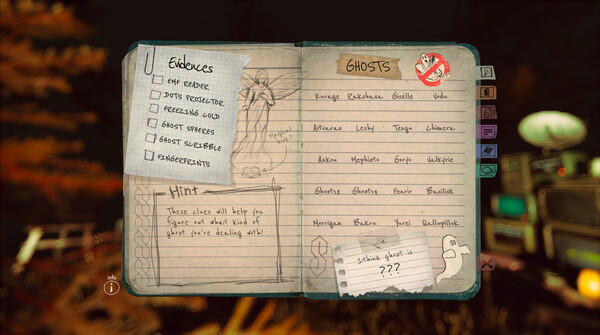 Evidences
EMF READER
DOTS PROJECTOR
FREEZING COLD
GHOST SPHERES
GHOST SCRIBBLE
FINGERPRINTS
Hint
These clues will help you
figure out what kind of
ghost you're dealing with!
info
GHOSTS
Rakshasa Giselle
Leshy Tengu Chimera
Mephisto Goryo Valkyrie
Fenrir Basilisk
Morrigan Yurei
I think ghost is
???